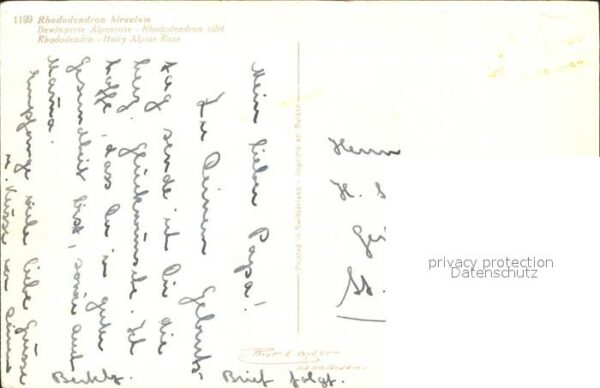 1199 Rhododendron hirsutum
Bewimperte Alpenrose - Rhododendron cilié
Rhododendro - Hairy Alpine Rose
Mein lieber Papa!
Zu Deinem Geburts-
tag sende ich Dir die
herz. Glückwünsche. Ich
hoffe, dass Du in guter
Gesundheit bist, sowie auch
Mama.
Empfange viele liebe Grüsse
u. Küsse von Deiner
Brief folgt.
Printed in Switzerland - Imprimé en Suisse
Herrn
H.
privacy protection
Datenschutz